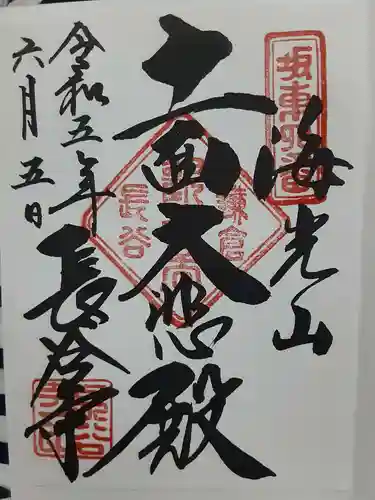 坂東四番
海光山
十一面大悲殿
鎌倉
長谷
長谷寺
令和五年
六月五日